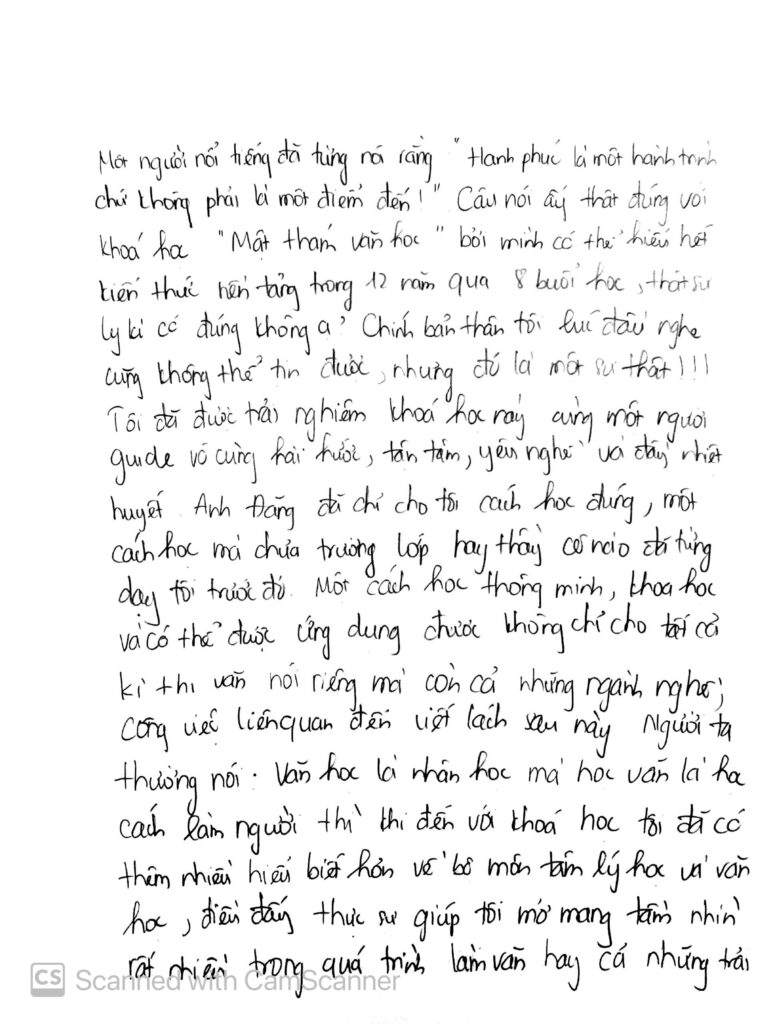 Một người nổi tiếng đã từng nói rằng "Hạnh phúc là một hành trình
chứ không phải là một điểm đến!" Câu nói ấy thật đúng với
khoá học "Mật thám văn học" bởi mình có thể hiểu hết
kiến thức nền tảng trong 12 năm qua 8 buổi học, thật sự
ly kì có đúng không ạ? Chính bản thân tôi lúc đầu nghe
cũng không thể tin được, nhưng đó là một sự thật!!!
Tôi đã được trải nghiệm khoá học này cùng một người
guide vô cùng hài hước, tận tâm, yêu nghề và đầy nhiệt
huyết. Anh Đăng đã chỉ cho tôi cách học đúng, một
cách học mà chưa trường lớp hay thầy cô nào đã từng
dạy tôi trước đó. Một cách học thông minh, khoa học
và có thể được ứng dụng được không chỉ cho tất cả
kì thi văn nói riêng mà còn cả những ngành nghề;
công việc liên quan đến viết lách sau này. Người ta
thường nói: Văn học là nhân học mà học văn là học
cách làm người thì khi đến với khoá học tôi đã có
thêm nhiều hiểu biết hơn về bộ môn tâm lý học và văn
học, điều đấy thực sự giúp tôi mở mang tầm nhìn
rất nhiều trong quá trình làm văn hay cả những trải
CS Scanned with CamScanner